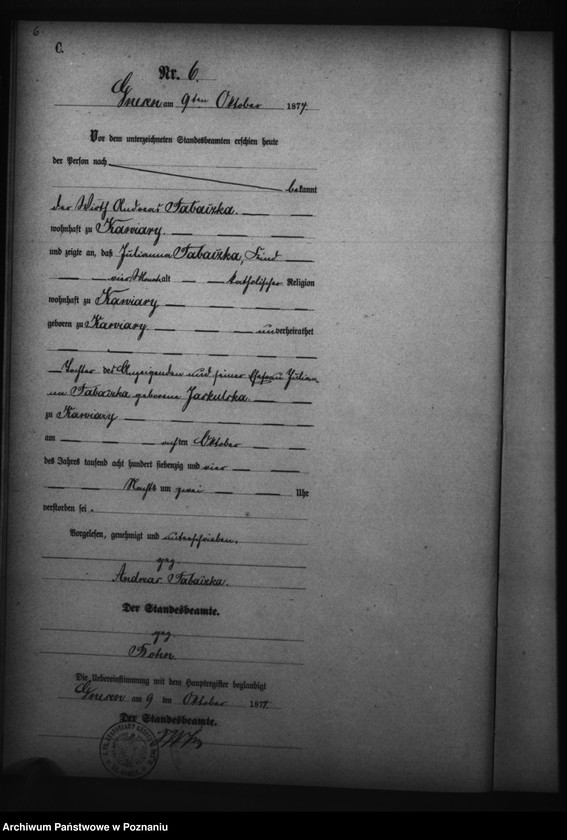 6
C.
Nr. 6.
Gnesen am 9ten Oktober 1874.
Vor dem unterzeichneten Standesbeamten erschien heute
der Person nach
bekannt
der Wirth Andreas Tabaczka.
wohnhaft zu Karwiary.
und zeigte an, daß Julianna Tabaczka, Kind
vier Monat alt katholischer Religion
wohnhaft zu Karwiary
geboren zu Karwiary unverheirathet
Tochter des Anzeigenden und seiner Ehefrau Julian
na Tabaczka geborene Jaskulska
zu Karwiary
am achten Oktober
des Jahres tausend acht hundert siebenzig und vier
Nachts um zwei Uhr
verstorben sei.
Vorgelesen, genehmigt und unterschrieben.
gez
Andreas Tabaczka.
Der Standesbeamte.
gez
Die Uebereinstimmung mit dem Hauptregister beglaubigt
Gnesen am 9 ten Oktober 1874.
Der Standesbeamte.
Archiwum Państwowe w Poznaniu